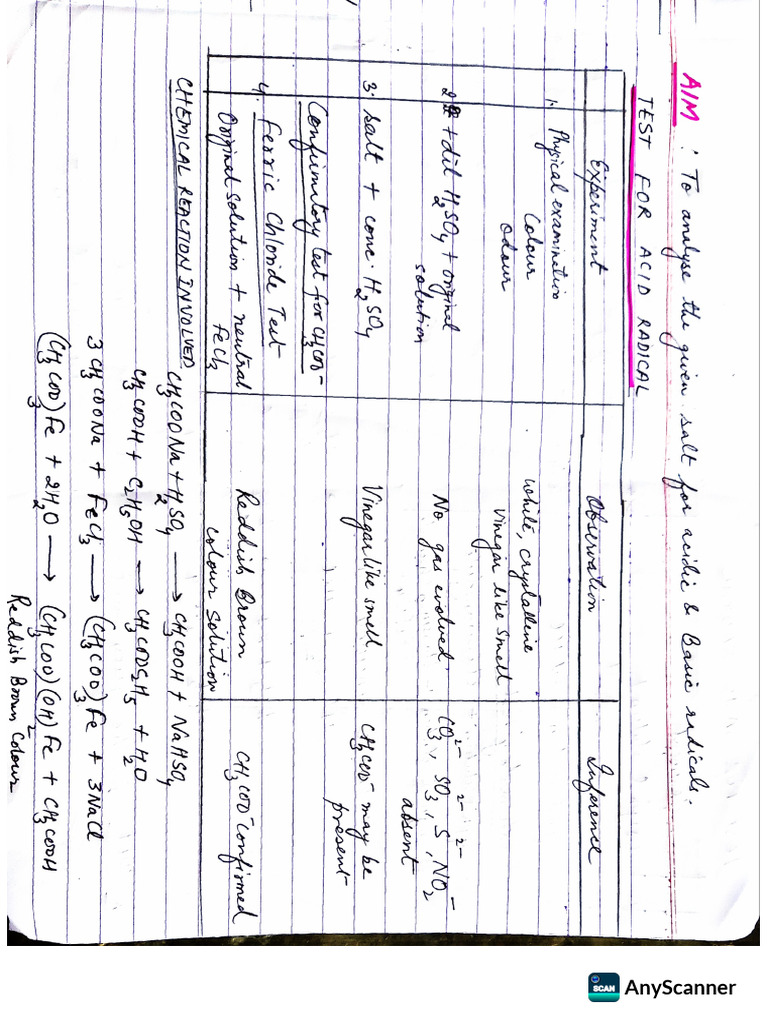 AIM : To analyse the given salt for acidic & Basic radicals.
TEST FOR ACID RADICAL
Experiment Observation Inference
1. Physical examination
Colour white, crystalline
odour vinegar like smell
2. + dil H₂SO₄ + original solution No gas evolved CO₃²⁻, SO₃²⁻, S²⁻, NO₂⁻ absent
3. Salt + conc. H₂SO₄ Vinegar like smell CH₃COO⁻ may be present
Confirmatory test for CH₃COO⁻
4. Ferric Chloride Test
Original solution + neutral FeCl₃ Reddish Brown colour solution CH₃COO⁻ confirmed
CHEMICAL REACTION INVOLVED
CH₃COONa + H₂SO₄ ⟶ CH₃COOH + NaHSO₄
CH₃COOH + C₂H₅OH ⟶ CH₃COOC₂H₅ + H₂O
3CH₃COONa + FeCl₃ ⟶ (CH₃COO)₃Fe + 3NaCl
(CH₃COO)₃Fe + 2H₂O ⟶ (CH₃COO)(OH)₂Fe + CH₃COOH
Reddish Brown Colour
SCAN AnyScanner